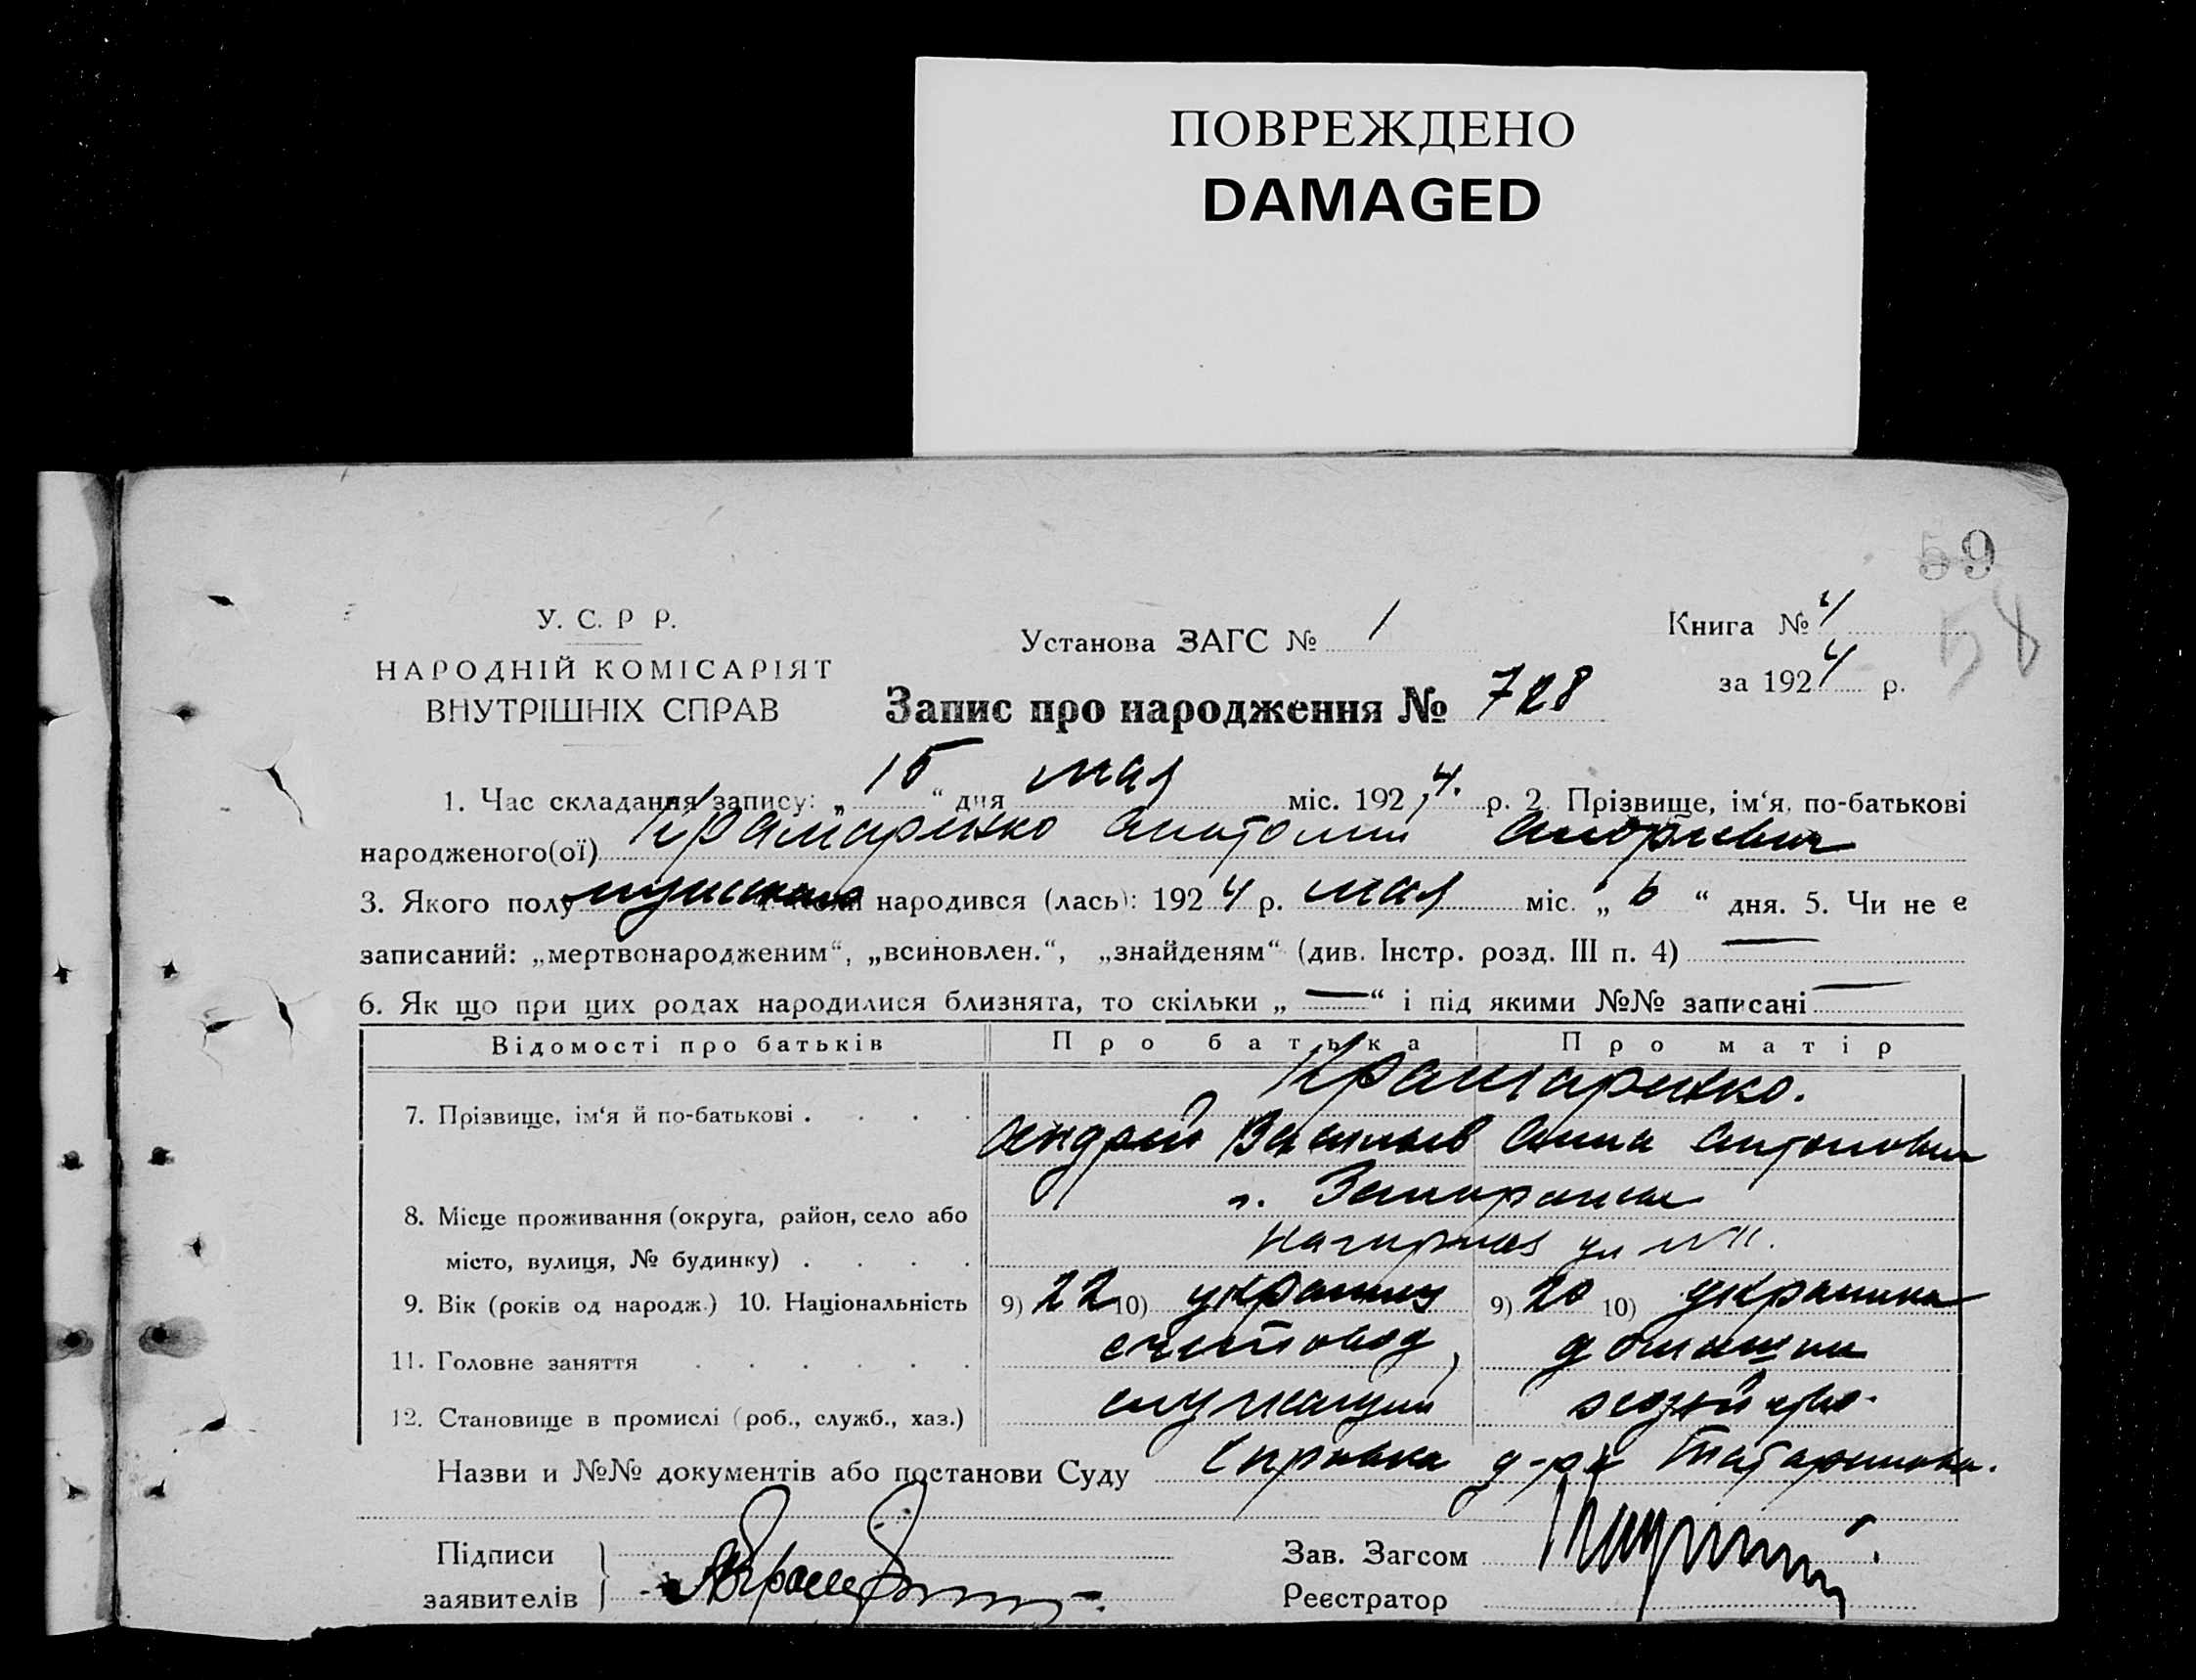 ПОВРЕЖДЕНО
DAMAGED
59
58
У. С. Р Р.
НАРОДНІЙ КОМІСАРІЯТ
ВНУТРІШНІХ СПРАВ
Установа ЗАГС № 1
Книга № 4
за 1924 р.
Запис про народження № 728
1. Час складання запису: „ 15 “ дня мая міс. 1924. р. 2. Прізвище, ім‘я, по-батькові
народженого(ої) Крамаренко Анатолий Андреевич
3. Якого полу мужского 4. Коли народився (лась): 1924 р. мая міс. „ 6 “ дня. 5. Чи не є
записаний: „мертвонародженим“, „всиновлен.“, „знайденям“ (див. Інстр. розд. III п. 4) —
6. Як що при цих родах народилися близнята, то скільки „ — “ і під якими №№ записані —
Відомості про батьків Про батька Про матір
Крамаренко.
7. Прізвище, ім‘я й по-батькові . . . .
Андрей Васильев Анна Антоновна
8. Місце проживання (округа, район, село або
місто, вулиця, № будинку) . . . .
ул №11.
9. Вік (років од народж.) 10. Національність 9) 22 10) украинец 9) 20 10) украинка
11. Головне заняття . . . . . . счетовод, домашнее
12. Становище в промислі (роб., служб., хаз.) служащий хозяйство.
Назви и №№ документів або постанови Суду Справка д-ра Татаринова.
Підписи
заявителів
Зав. Загсом
Реєстратор